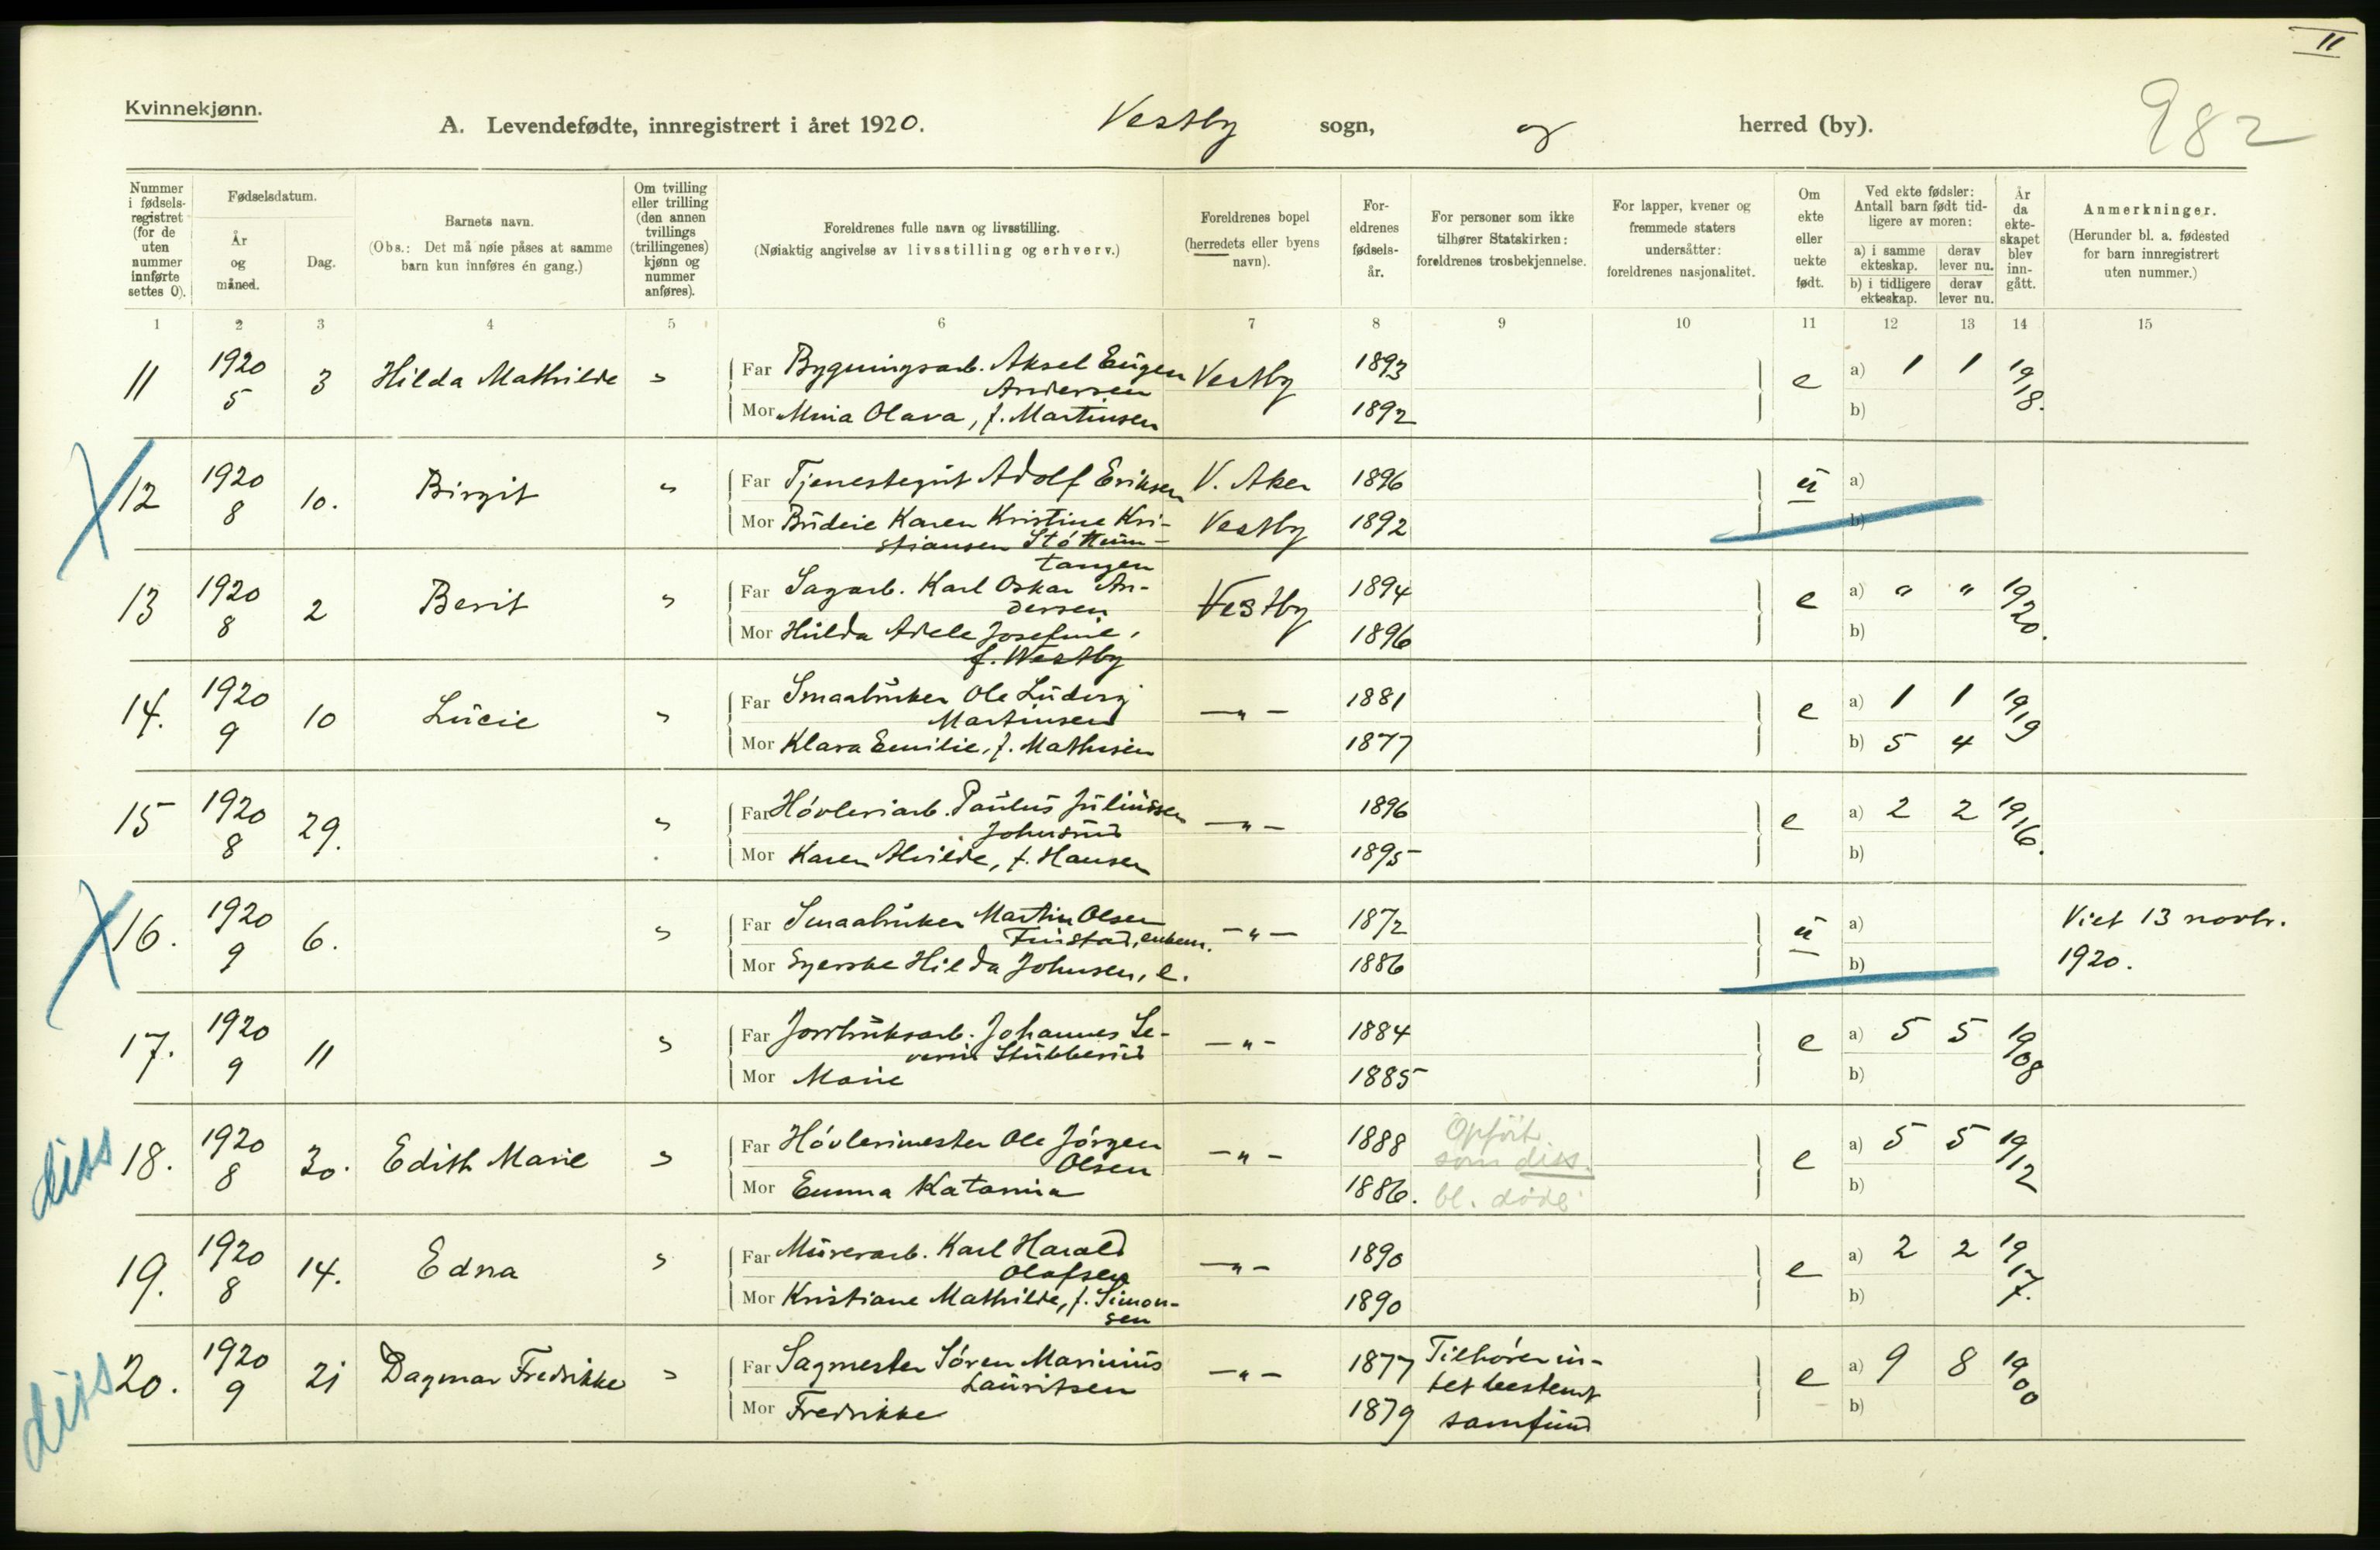 II
Kvinnekjønn.
A. Levendefødte, innregistrert i året 1920. Vestby sogn, og herred (by).
982
Nummer i fødsels-registret (for de uten nummer innførte settes 0).
Fødselsdatum.
År og måned.
Dag.
Barnets navn.
(Obs.: Det må nøie påses at samme barn kun innføres én gang.)
Om tvilling eller trilling (den annen tvillings (trillingenes) kjønn og nummer anføres).
Foreldrenes fulle navn og livsstilling.
(Nøiaktig angivelse av livsstilling og erhverv.)
Foreldrenes bopel (herredets eller byens navn).
For-eldrenes fødsels-år.
For personer som ikke tilhører Statskirken: foreldrenes trosbekjennelse.
For lapper, kvener og fremmede staters undersåtter: foreldrenes nasjonalitet.
Om ekte eller uekte født.
Ved ekte fødsler: Antall barn født tid-ligere av moren:
a) i samme ekteskap. derav lever nu.
b) i tidligere ekteskap. derav lever nu.
År da ekte-skapet blev inn-gått.
Anmerkninger.
(Herunder bl. a. fødested for barn innregistrert uten nummer.)
1 2 3 4 5 6 7 8 9 10 11 12 13 14 15
11 1920 5 3 Hilda Mathilde " Far Bygningsarb. Aksel Eugen Andersen Vestby 1893 e a) 1 1 1918.
Mor Mina Olava, f. Martinsen 1892 b)
12 1920 8 10. Birgit " Far Tjenestegut Adolf Eriksen V. Aker 1896 u a)
Mor Budeie Karen Kristine Kri-stiansen Støttum-tangen Vestby 1892 b)
13 1920 8 2 Berit " Far Sagarb. Karl Oskar An-dersen Vestby 1894 e a) " " 1920.
Mor Hulda Adele Josefine, f. Westby 1896 b)
14. 1920 9 10 Lucie " Far Smaabruker Ole Ludvig Martinsen — " — 1881 e a) 1 1 1919
Mor Klara Emilie, f. Mathisen 1877 b) 5 4
15 1920 8 29. " Far Høvleriarb. Paulus Juliussen Johnsrud — " — 1896 e a) 2 2 1916.
Mor Karen Alvilde, f. Hansen 1895 b)
16. 1920 9 6. " Far Smaabruker Martin Olsen Finstad, enkem. — " — 1872 u a) Viet 13 novbr.
Mor Syerske Hilda Johnsen, e. 1886 b) 1920.
17. 1920 9 11 " Far Jordbruksarb. Johannes Se-verin Stubberud — " — 1884 e a) 5 5 1908
Mor Marie 1885 b)
diss 18. 1920 8 30. Edith Marie " Far Høvlerimester Ole Jørgen Olsen — " — 1888 Opført som diss. bl. døde e a) 5 5 1912
Mor Emma Katarina 1886. b)
19. 1920 8 14. Edna " Far Murerarb. Karl Harald Olafsen — " — 1890 e a) 2 2 1917.
Mor Kristiane Mathilde, f. Simon-sen 1890 b)
diss 20. 1920 9 21 Dagmar Fredrikke " Far Sagmester Søren Marinius Lauritsen — " — 1877 Tilhører in-tet bestemt samfund e a) 9 8 1900
Mor Fredrikke 1879 b)